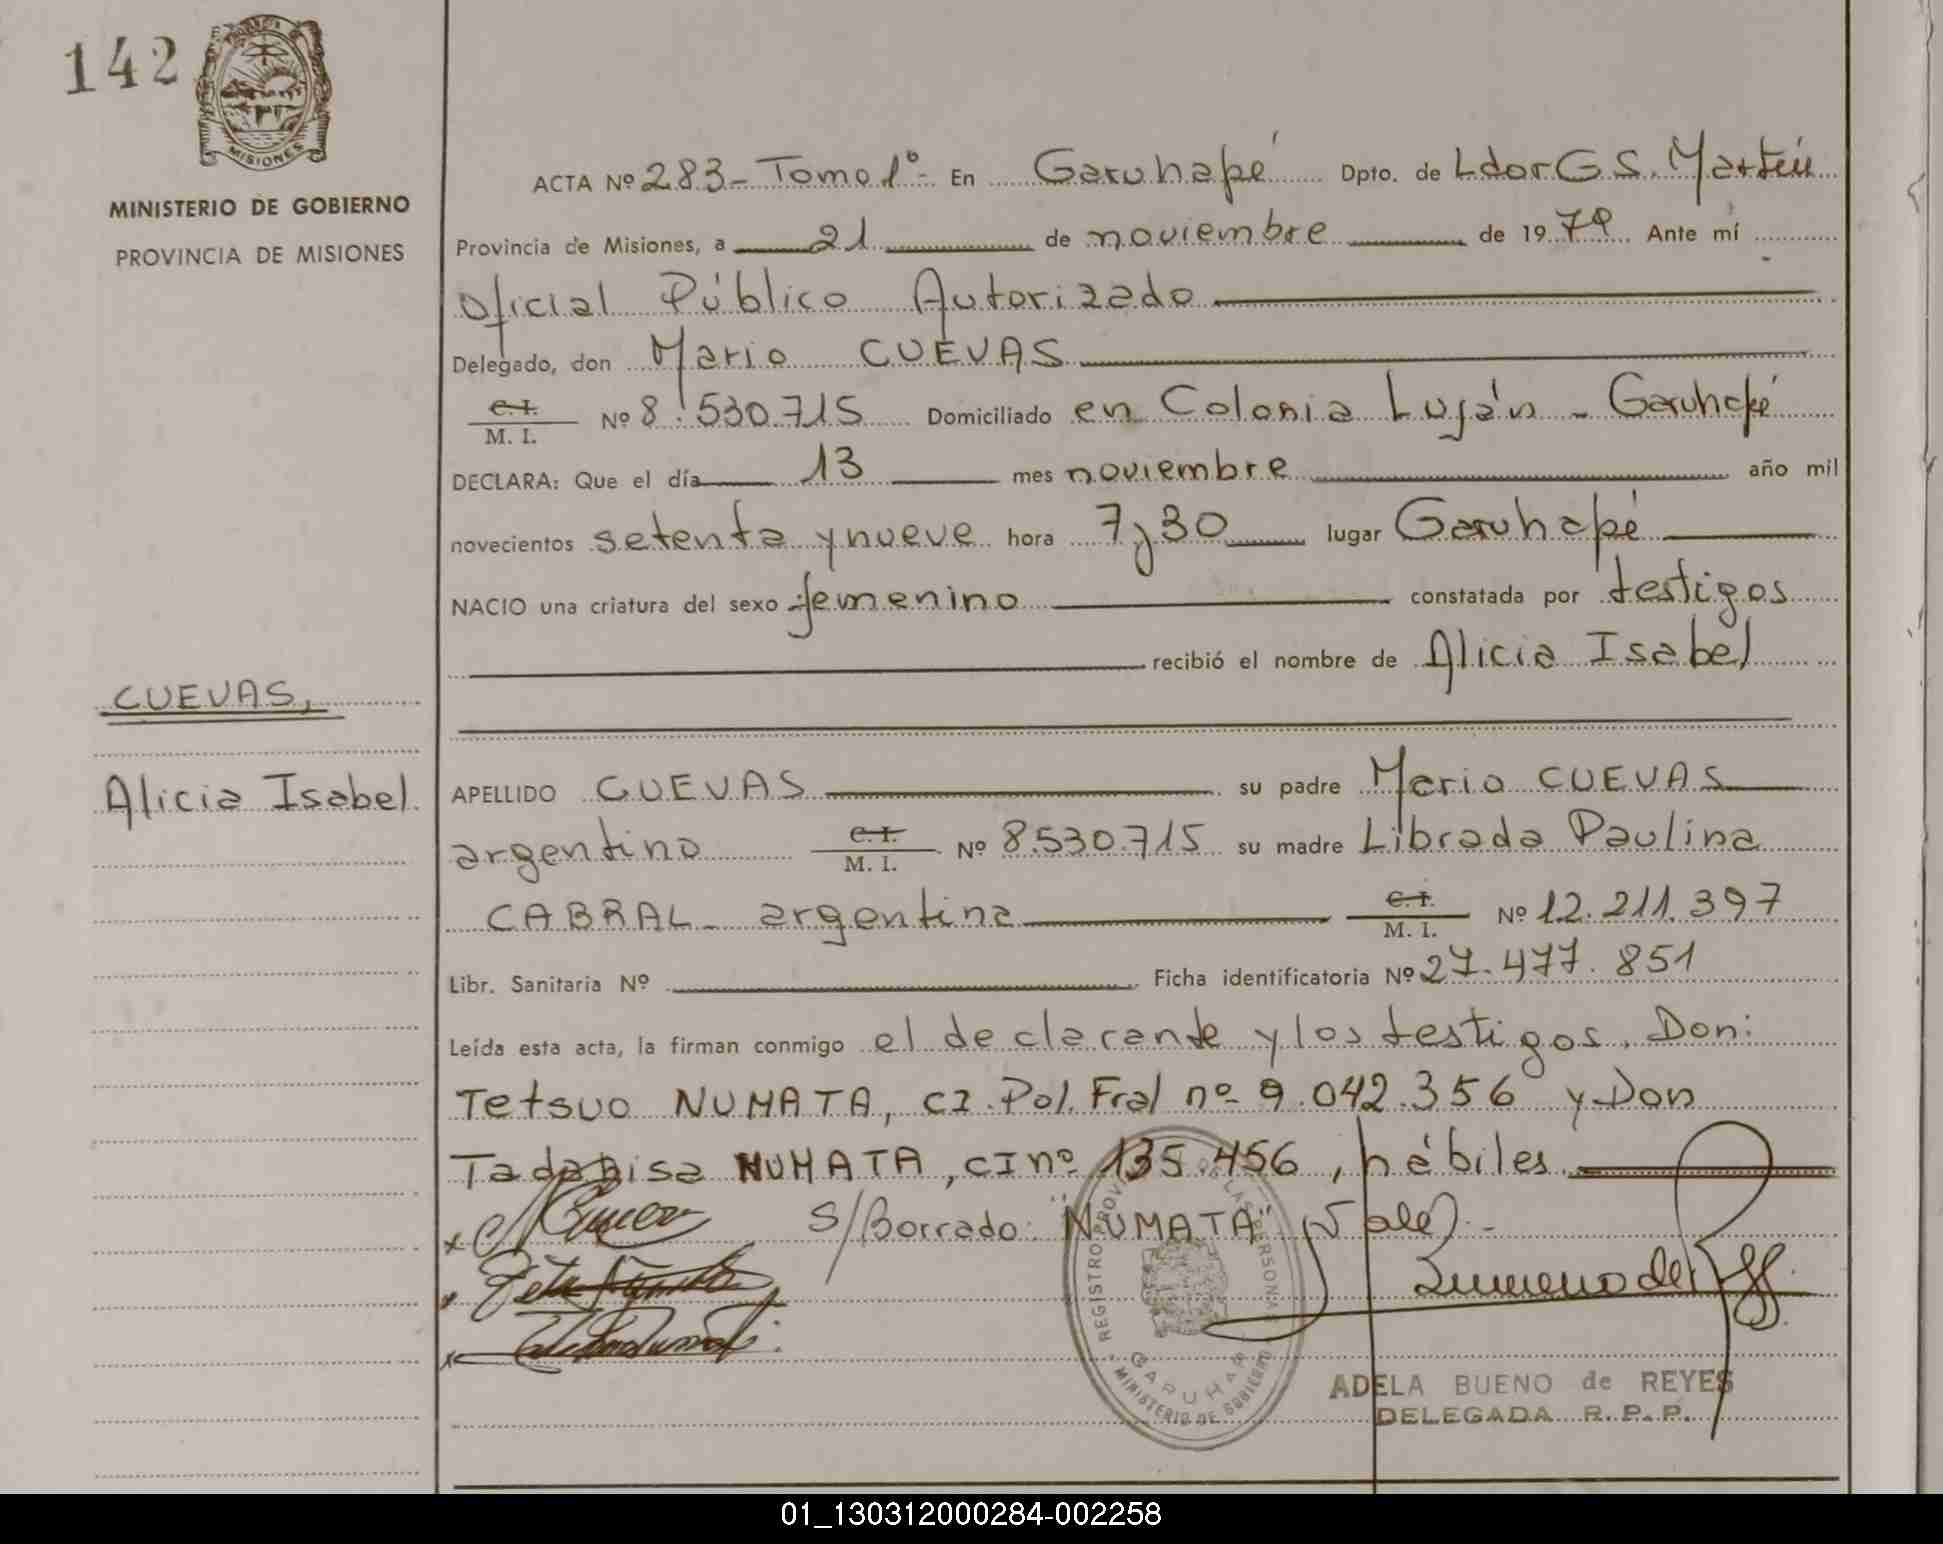 142
MISIONES
MINISTERIO DE GOBIERNO
PROVINCIA DE MISIONES
CUEVAS,
Alicia Isabel
ACTA Nº 283 - Tomo 1º - En Garuhapé Dpto. de Ldor G. S. Martín
Provincia de Misiones, a 21 de noviembre de 1979 Ante mí
Oficial Público Autorizado
Delegado, don Mario CUEVAS
C. I.
M. I. Nº 8.530.715 Domiciliado en Colonia Luján - Garuhapé
DECLARA: Que el día 13 mes noviembre año mil
novecientos setenta y nueve hora 7,30 lugar Garuhapé
NACIO una criatura del sexo femenino constatada por testigos
recibió el nombre de Alicia Isabel
APELLIDO CUEVAS su padre Mario CUEVAS
argentino C. I.
M. I. Nº 8.530.715 su madre Librada Paulina
CABRAL - argentina C. I.
M. I. Nº 12.211.397
Libr. Sanitaria Nº Ficha identificatoria Nº 27.477.851
Leída esta acta, la firman conmigo el declarante y los testigos, Don:
Tetsuo NUMATA, CI. Pol. Fral nº 9.042.356 y Don
Tadahisa NUMATA, CI nº 135.456, hábiles
S/Borrado: "NUMATA" (Vale). -
REGISTRO PROV DE LAS PERSONAS
GARUHAPE
MINISTERIO DE GOBIERNO
ADELA BUENO de REYES
DELEGADA R. P. P.
01_130312000284-002258